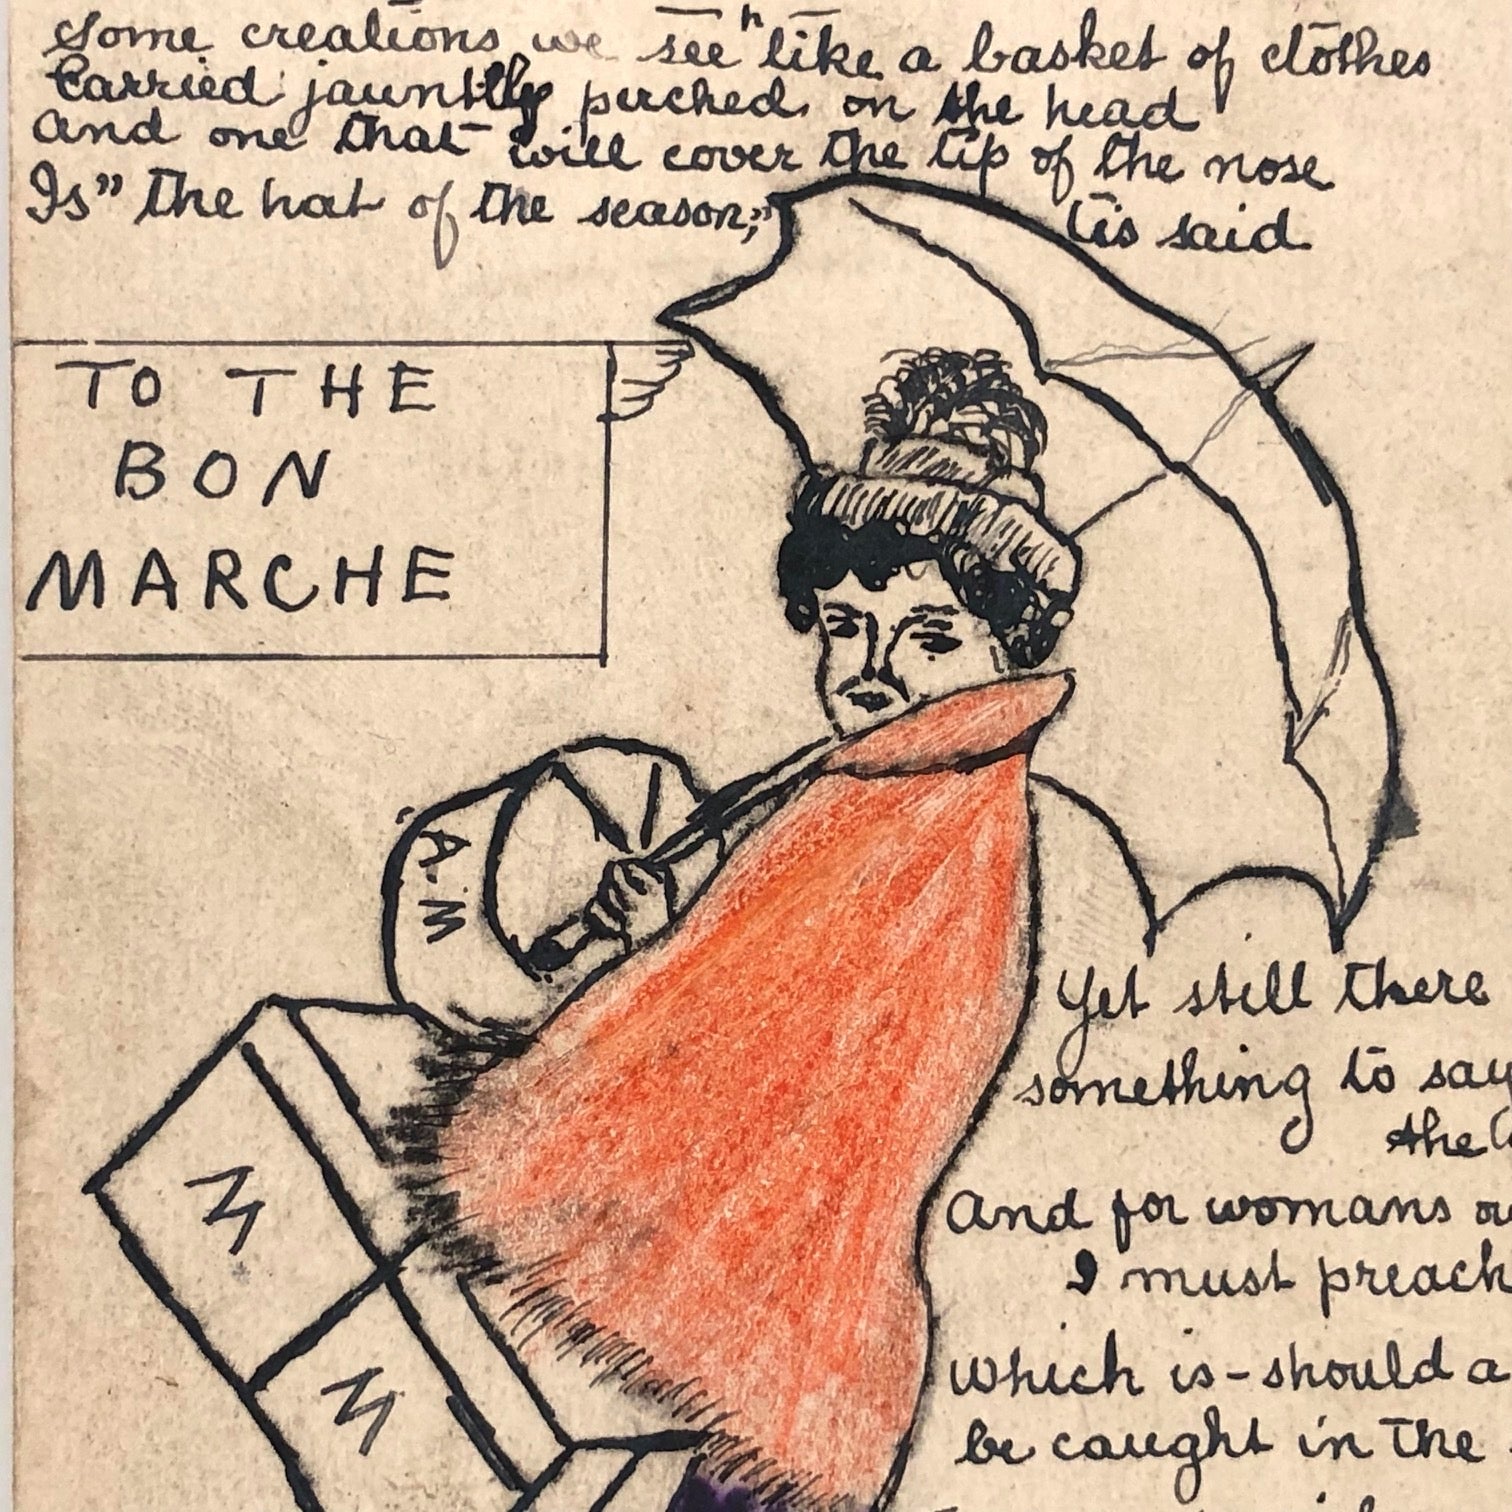 Some creations we see "like a basket of clothes
Carried jauntily perched on the head
And one that will cover the tip of the nose
Is" the hat of the season;" tis said
TO THE
BON
MARCHE
A.M
M
M
Yet still there
something to say
the
And for womans
I must preach
Which is - should a
be caught in the